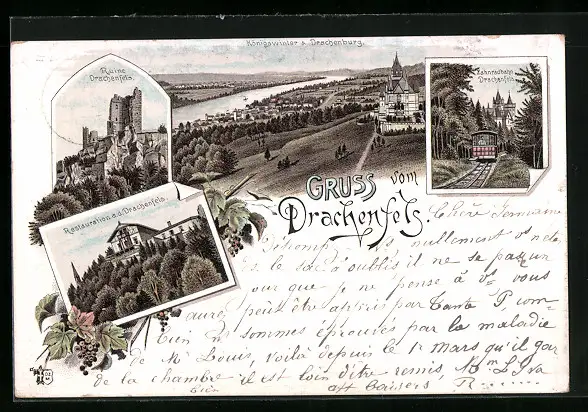 Königswinter & Drachenburg.
Ruine
Drachenfels.
Zahnradbahn
Drachenfels
Restauration a.d. Drachenfels.
Gruss vom
Drachenfels.
Chère Germaine
nullement
le sac à oublis il ne se pas un
jour que je ne pense à vs vous
aurez peut être appris par Tante P. com-
bien ns sommes éprouvés par la maladie
de Mr Louis, voilà depuis le 1r mars qu'il gar
de la chambre il est loin d'être remis, Mme L. va
bien aff baisers R